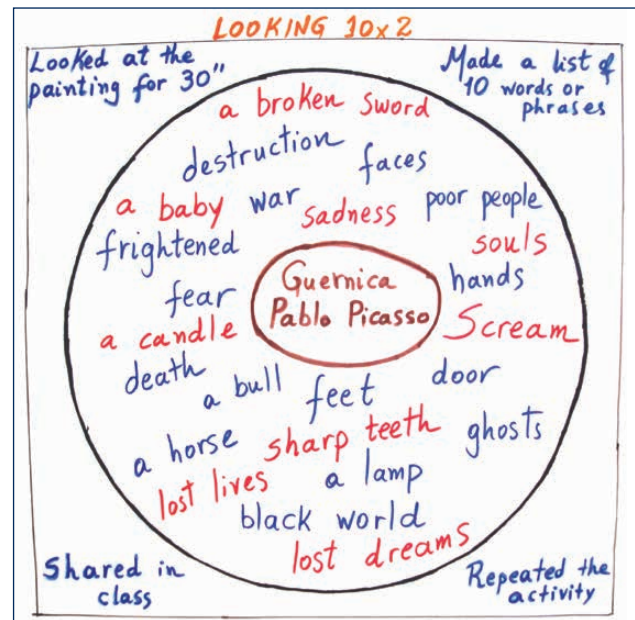 LOOKING 10x2
Looked at the
painting for 30"
Made a list of
10 words or
phrases
a broken sword
destruction
faces
a baby
war
sadness
poor people
frightened
souls
Guernica
Pablo Picasso
hands
fear
a candle
Scream
death
a bull
feet
door
a horse
sharp teeth
ghosts
lost lives
a lamp
black world
lost dreams
Shared in
class
Repeated the
activity